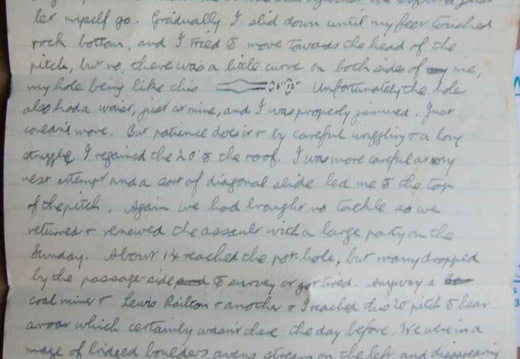 let myself go. Gradually I slid down until my feet touched
rock bottom, and I tried to move towards the head of the
pitch, but no, there was a little curve on both sides of me,
my hole being like this Unfortunately the hole
also had a waist, just as mine, and I was properly jammed. Just
couldn't move. But patience does it & by careful wriggling & a long
struggle I regained the 20' to the roof. I was more careful at my
next attempt and a sort of diagonal slide led me to the top
of the pitch. Again we had brought no tackle so we
returned & renewed the assault with a large party on the
Sunday. About 14 reached the pot hole, but many dropped
by the passage side to survey or got tired. Anyway a
coal miner & Lewis Railton & another & I reached this 20' pitch to hear
a roar which certainly wasn't there the day before. We were in a
maze of bridged boulders a stream on the left and disappearing